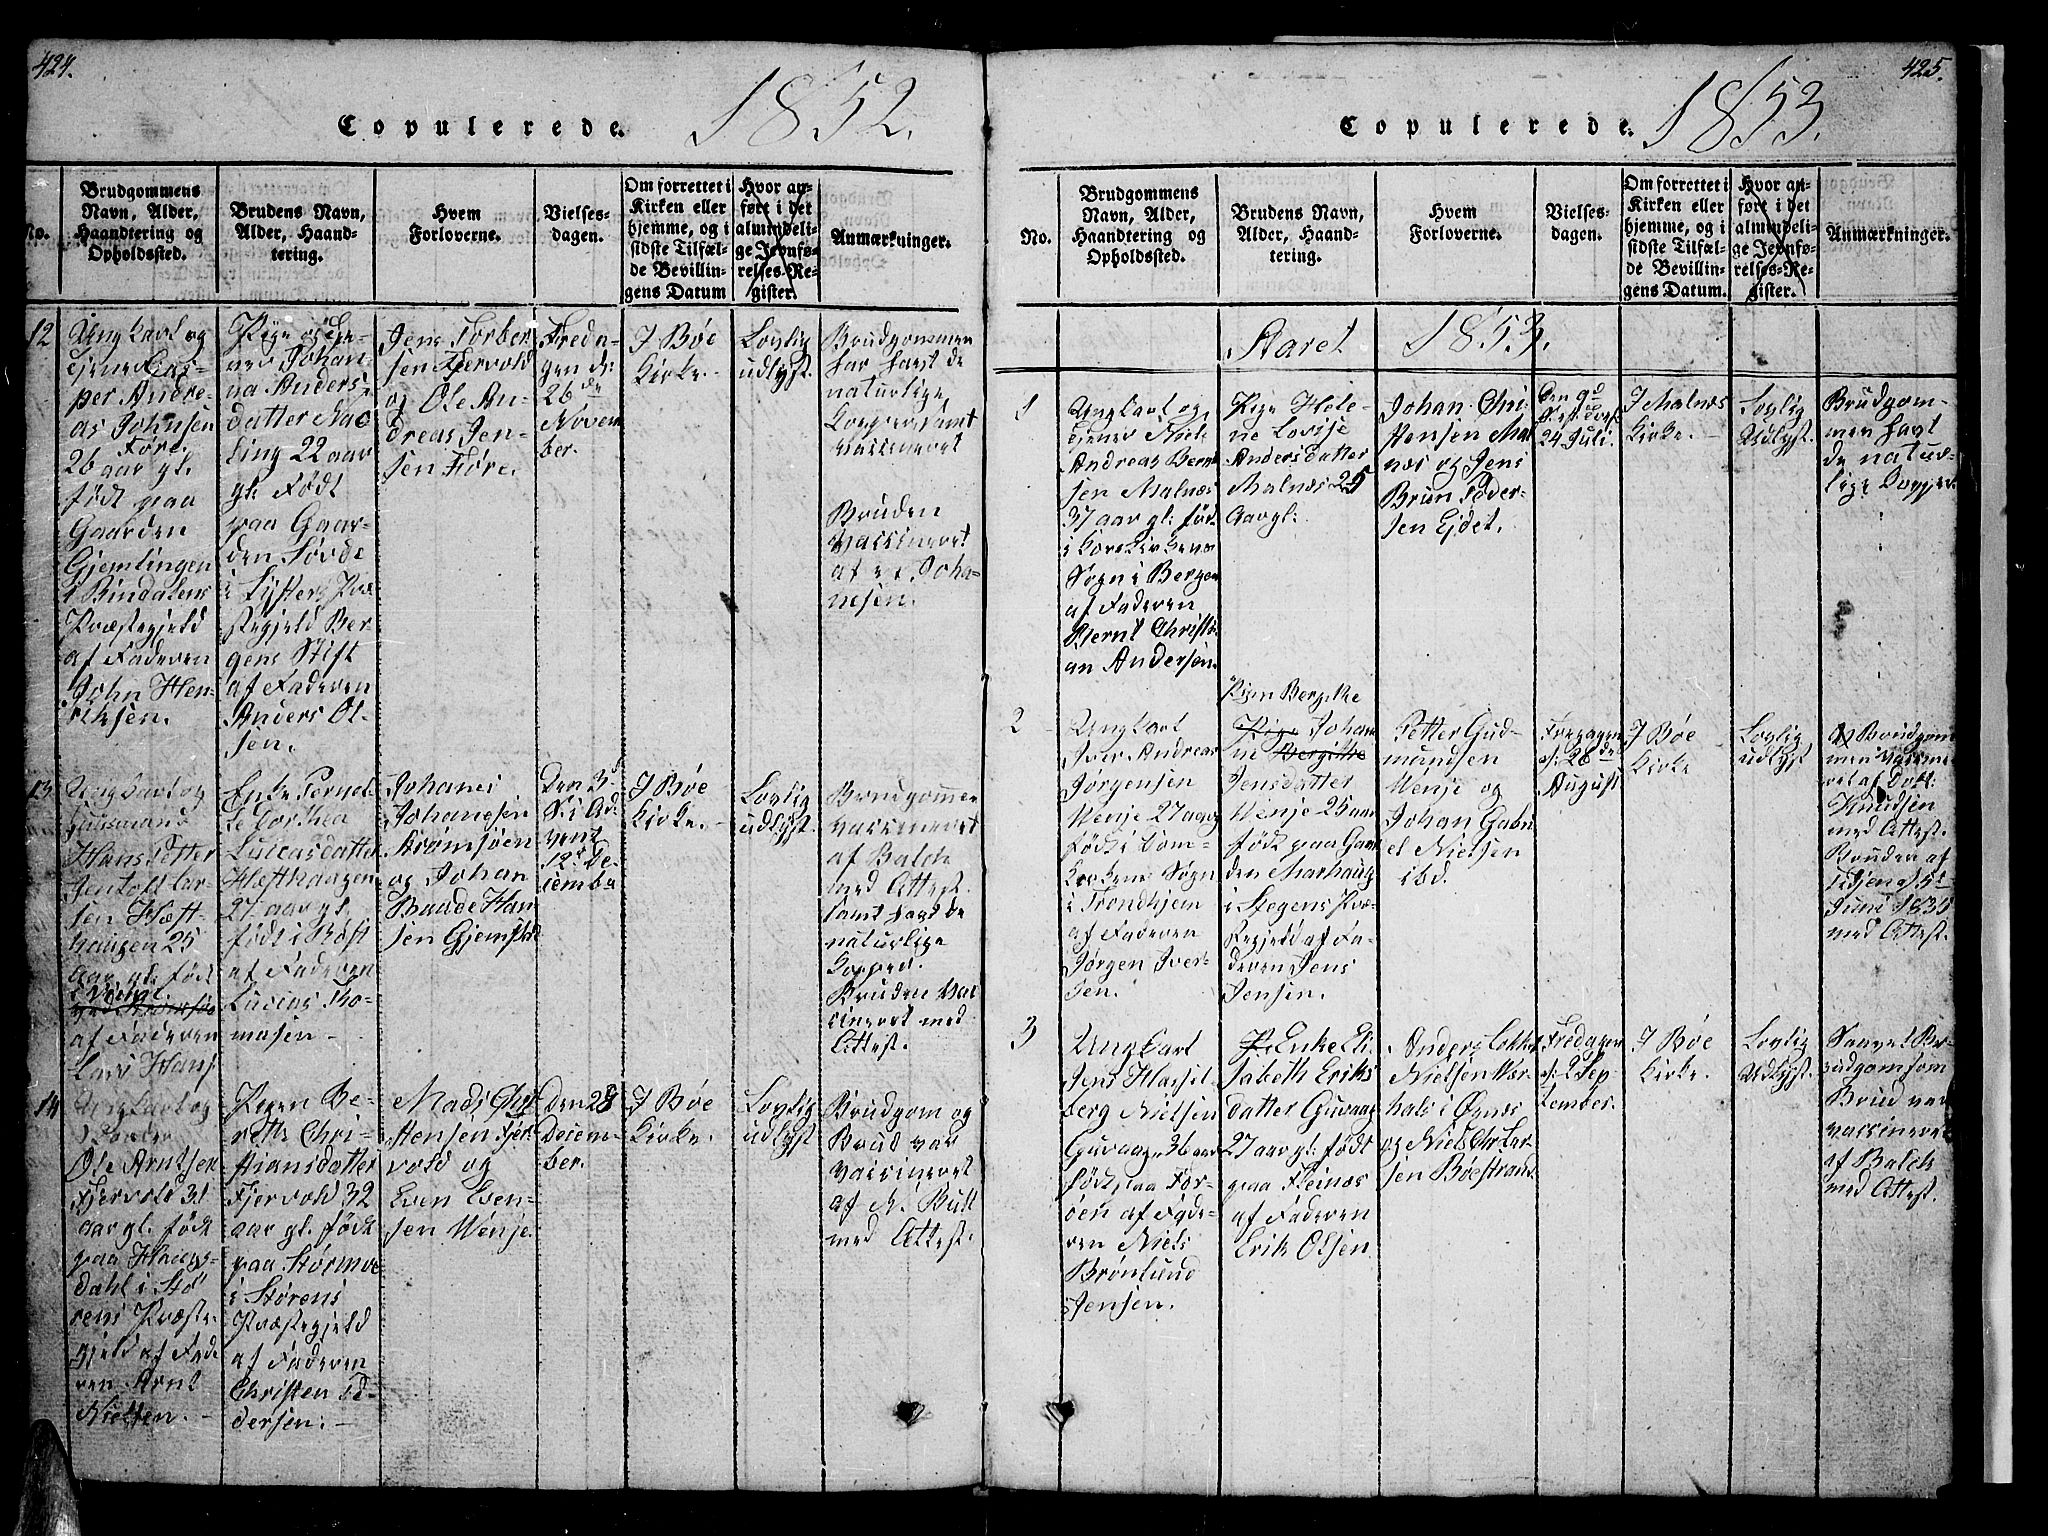 424.
1852.
Copulerede.
No.
Brudgommens Navn, Alder, Haandtering og Opholdssted.
Brudens Navn, Alder, Haandtering.
Hvem Forloverne.
Vielsesdagen.
Om forrettet i Kirken eller hjemme, og i sidste Tilfælde Bevillingens Datum
Hvor anført i det almindelige Jevnførelses-Register.
Anmærkninger.
12
Ungkarl og
tjener Cas-
per Andre-
as Johnsen
Føre
26 aar gl.
født paa
Gaarden
Gjemlingen
i Bindalens
Præstegjeld
af Faderen
John Hen-
riksen.
Pige og tje-
ner Johan-
na Anders-
datter Mæ
ling 22 aar
gl. Født
paa Gaar-
den Søvde
i Lysters Præ-
stegjeld Ber-
gens Stift
af Faderen
Anders Ol-
sen.
Jens Torber
sen Fjervold
og Ole An-
dreas Jen-
sen Føre.
Freda-
gen d:
26de
Novem
ber.
I Bøe
Kirke.
Lovlig
udlyst.
Brudgommen
har havt de
naturlige
Kopper samt
vaccineret
Bruden
vaccineret
af
Joha-
nesen.
13
Ungkarl og
Huusmand
Hans Petter
Jentoft Lar-
sen Hæft-
haugen 25
aar gl. født
af Faderen
Lars Hans
Enke Pernel-
le Dorthea
Lucasdatter
Hæfthaugen
27 aar gl.
født i Røst
af Faderen
Lucas Tho-
masen
Johanes
Johansen
Strømsøen
og Johan
Baade Han
sen Gjemstad
Den 3d
S. i Ad-
vent
12te De-
cember
I Bøe
Kirke.
Lovlig
udlyst.
Brudgommen
vaccineret
af Balch
med Attest.
samt havt de
naturlige
Kopper.
Bruden vac
cineret med
Attest.
14
Ungkarl og
Ole Arntsen
Fjervold 31
aar gl. født
paa Haugs-
dahl i Stø
rens Præste
gjeld af Fade
ren Arnt
Nielsen.
Pigen Be-
reth Chri-
stiansdatter
Fjervold 32
aar gl. født
paa Størmoe
i Størens
Præstegjeld
af Faderen
Christen Pe-
dersen.
Mads Chri
stensen Fjer
vold og
Even Even-
sen Wenje.
den 28
Decem-
ber.
I Bøe
Kirke.
Lovlig
udlyst
Brudgom og
Brud var
vaccineret
af N. Bull
med Attest.
425.
1853.
Copulerede.
No.
Brudgommens Navn, Alder, Haandtering og Opholdssted.
Brudens Navn, Alder, Haandtering.
Hvem Forloverne.
Vielsesdagen.
Om forrettet i Kirken eller hjemme, og i sidste Tilfælde Bevillingens Datum.
Hvor anført i det almindelige Jevnførelses-Register.
Anmærkninger.
Aaret 1853.
1
Ungkarl og
tjener Niels
Andreas Bernt
sen Malnæs
37 aar gl: født
i Korskirkens
Sogn i Bergen
af Faderen
Bernt Christi
an Andersen.
Pige Hele-
ne Lovise
Andersdatter
Malnæs 25
Aar gl:
Johan Chri
stensen Mal
næs og Jens
Bruun Peder-
sen Ejdet.
Den 9d
24 Juli.
I Malnæs
Kirke.
Lovlig
Udlyst.
Brudgom-
men havt
de natur-
lige Kopper.
2
Ungkarl
Iver Andreas
Jørgensen
Wenje 27 aar
født i Dom-
kirkens Sogn
i Trondhjem
af Faderen
Jørgen Iver-
sen.
Pigen Bergithe
Pige Johan
ne Bergitte
Jensdatter
Wenje 25 aar
født paa Gaar
den Marhaug
i Stegens Præ-
stegjeld af Fa-
deren Jens
Jensen.
Petter Gud-
mundsen
Wenje og
Johan Gabri
el Nielsen
ibd.
Fredagen
d: 26de
August
I Bøe
Kirke
Lovlig
udlyst
Brudgom
men vaccine
ret af Dokt:
Knudsen
med Attest.
Bruden af
d 5te
Juni 1835
med Attest.
3
Ungkarl
Jens Hassel-
berg Nielsen
Guvaag 36 aar
født paa Før-
øen af Fade-
ren Niels
Brønlund
Jensen.
Enke Eli-
sabeth Eriks
datter Guvaag
27 aar gl: født
paa Fleinæs
af Faderen
Erik Olsen.
Anders Cokke
Nielsen Vær-
hals i Øxnæs
og Niels Chr: Lar-
sen Bøestrand
Fredagen
d: 2 Sep-
tember.
I Bøe
Kirke.
Lovlig
Udlyst.
Saavel Br-
udgom som
Brud var
vaccineret
af Balch
med Attest.